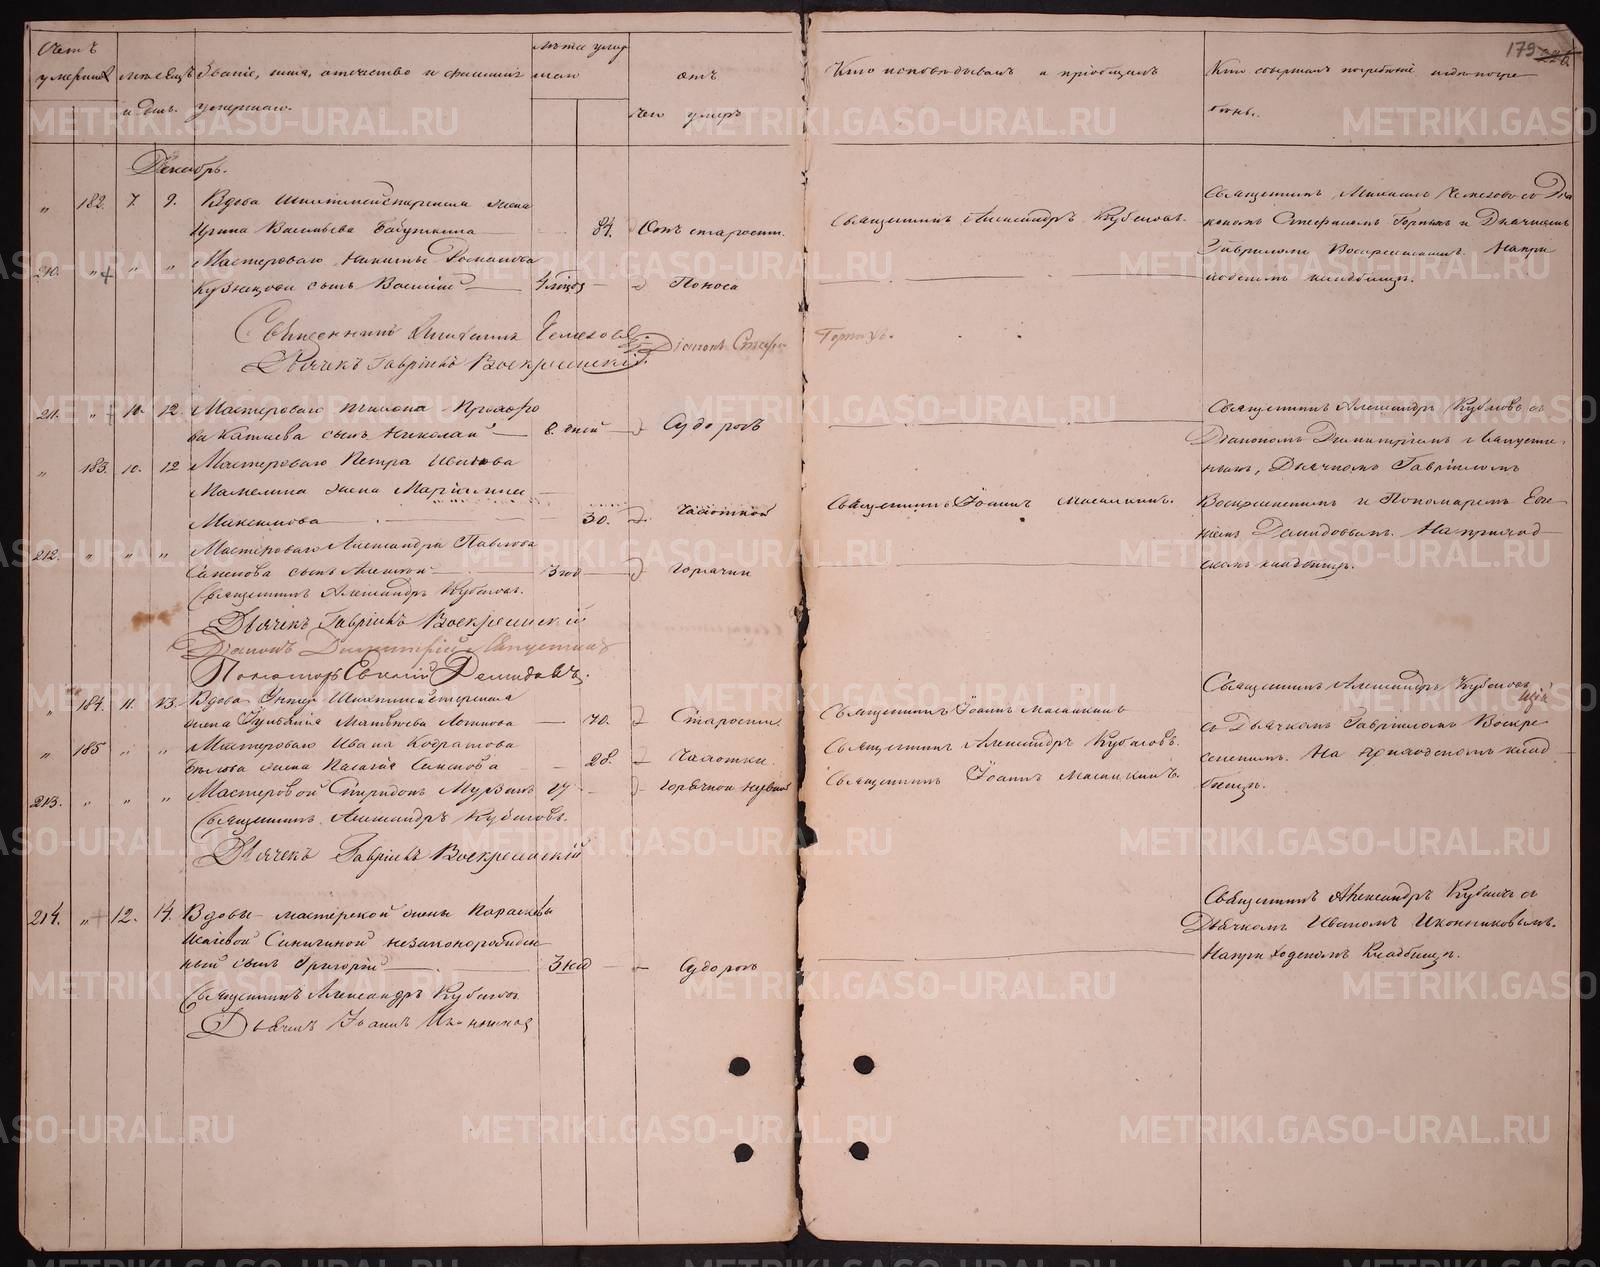 179
Счетъ умершихъ
Месяцъ и день.
Званіе, имя, отчество и фамилія умершаго.
Лета умершаго
отъ чего умеръ
Кто исповедывалъ и пріобщалъ
Кто совершалъ погребеніе и где погребены.
Декабрь.
" 182. 7. 9. Вдова Шихтмейстерская жена
Ирина Васильева Бабушкина 84. Отъ старости.
Священникъ Александръ Кубасовъ.
Священникъ Михаилъ Чемезовъ со Діа
кономъ Стефаномъ Горныхъ и Дьячкомъ
Гавріиломъ Воскресенскимъ. На при
ходскомъ кладбище.
210. " " " Мастероваго Никиты Романова
Кузнецова сынъ Василій Поноса
Священникъ Михаилъ Чемезовъ
Дьячекъ Гавріилъ Воскресенскій.
Діаконъ Стефанъ Горныхъ.
211. " 10. 12. Мастероваго
сынъ Николай 8. дней Судорогъ
Священникъ Александръ Кубасовъ съ
Діакономъ Димитріемъ
Дьячкомъ Гавріиломъ
Воскресенскимъ и Пономаремъ Евге
ніемъ Демидовымъ. На приход
скомъ кладбище.
" 183. 10. 12 Мастероваго Петра Иванова
жена
Максимова 30. Чахоткой
Священникъ Іоаннъ
212. " " " Мастероваго Александра Павлова
сынъ Алексей 3 год Горячки
Священникъ Александръ Кубасовъ.
Дьячекъ Гавріилъ Воскресенскій
Діаконъ Димитрій
Пономарь Евгеній Демидовъ.
" 184. 11. 13. Вдова Унтеръ Шихтмейстерская
жена Матвеева 70. Старости.
Священникъ Іоаннъ
Священникъ Александръ Кубасовъ
съ Дьячкомъ Гавріиломъ Воскре
сенскимъ. На приходскомъ клад
бище.
" 185 " " Мастероваго Ивана Кодратова
жена Пелагія Семенова 28. Чахотки.
Священникъ Александръ Кубасовъ.
213. " " " Мастеровой Спиридонъ Мурзинъ
Священникъ Іоаннъ
Священникъ Александръ Кубасовъ.
Дьячекъ Гавріилъ Воскресенскій
214. " 12. 14. Вдовы мастерской жены Параскевы
незаконорожден
ный сынъ Григорій 3 нед Судорогъ
Священникъ Александръ Кубасовъ съ
Дьячкомъ Иваномъ Иконниковымъ.
На приходскомъ Кладбище.
Священникъ Александръ Кубасовъ
Дьячекъ Іоаннъ Иконниковъ
METRIKI.GASO-URAL.RU